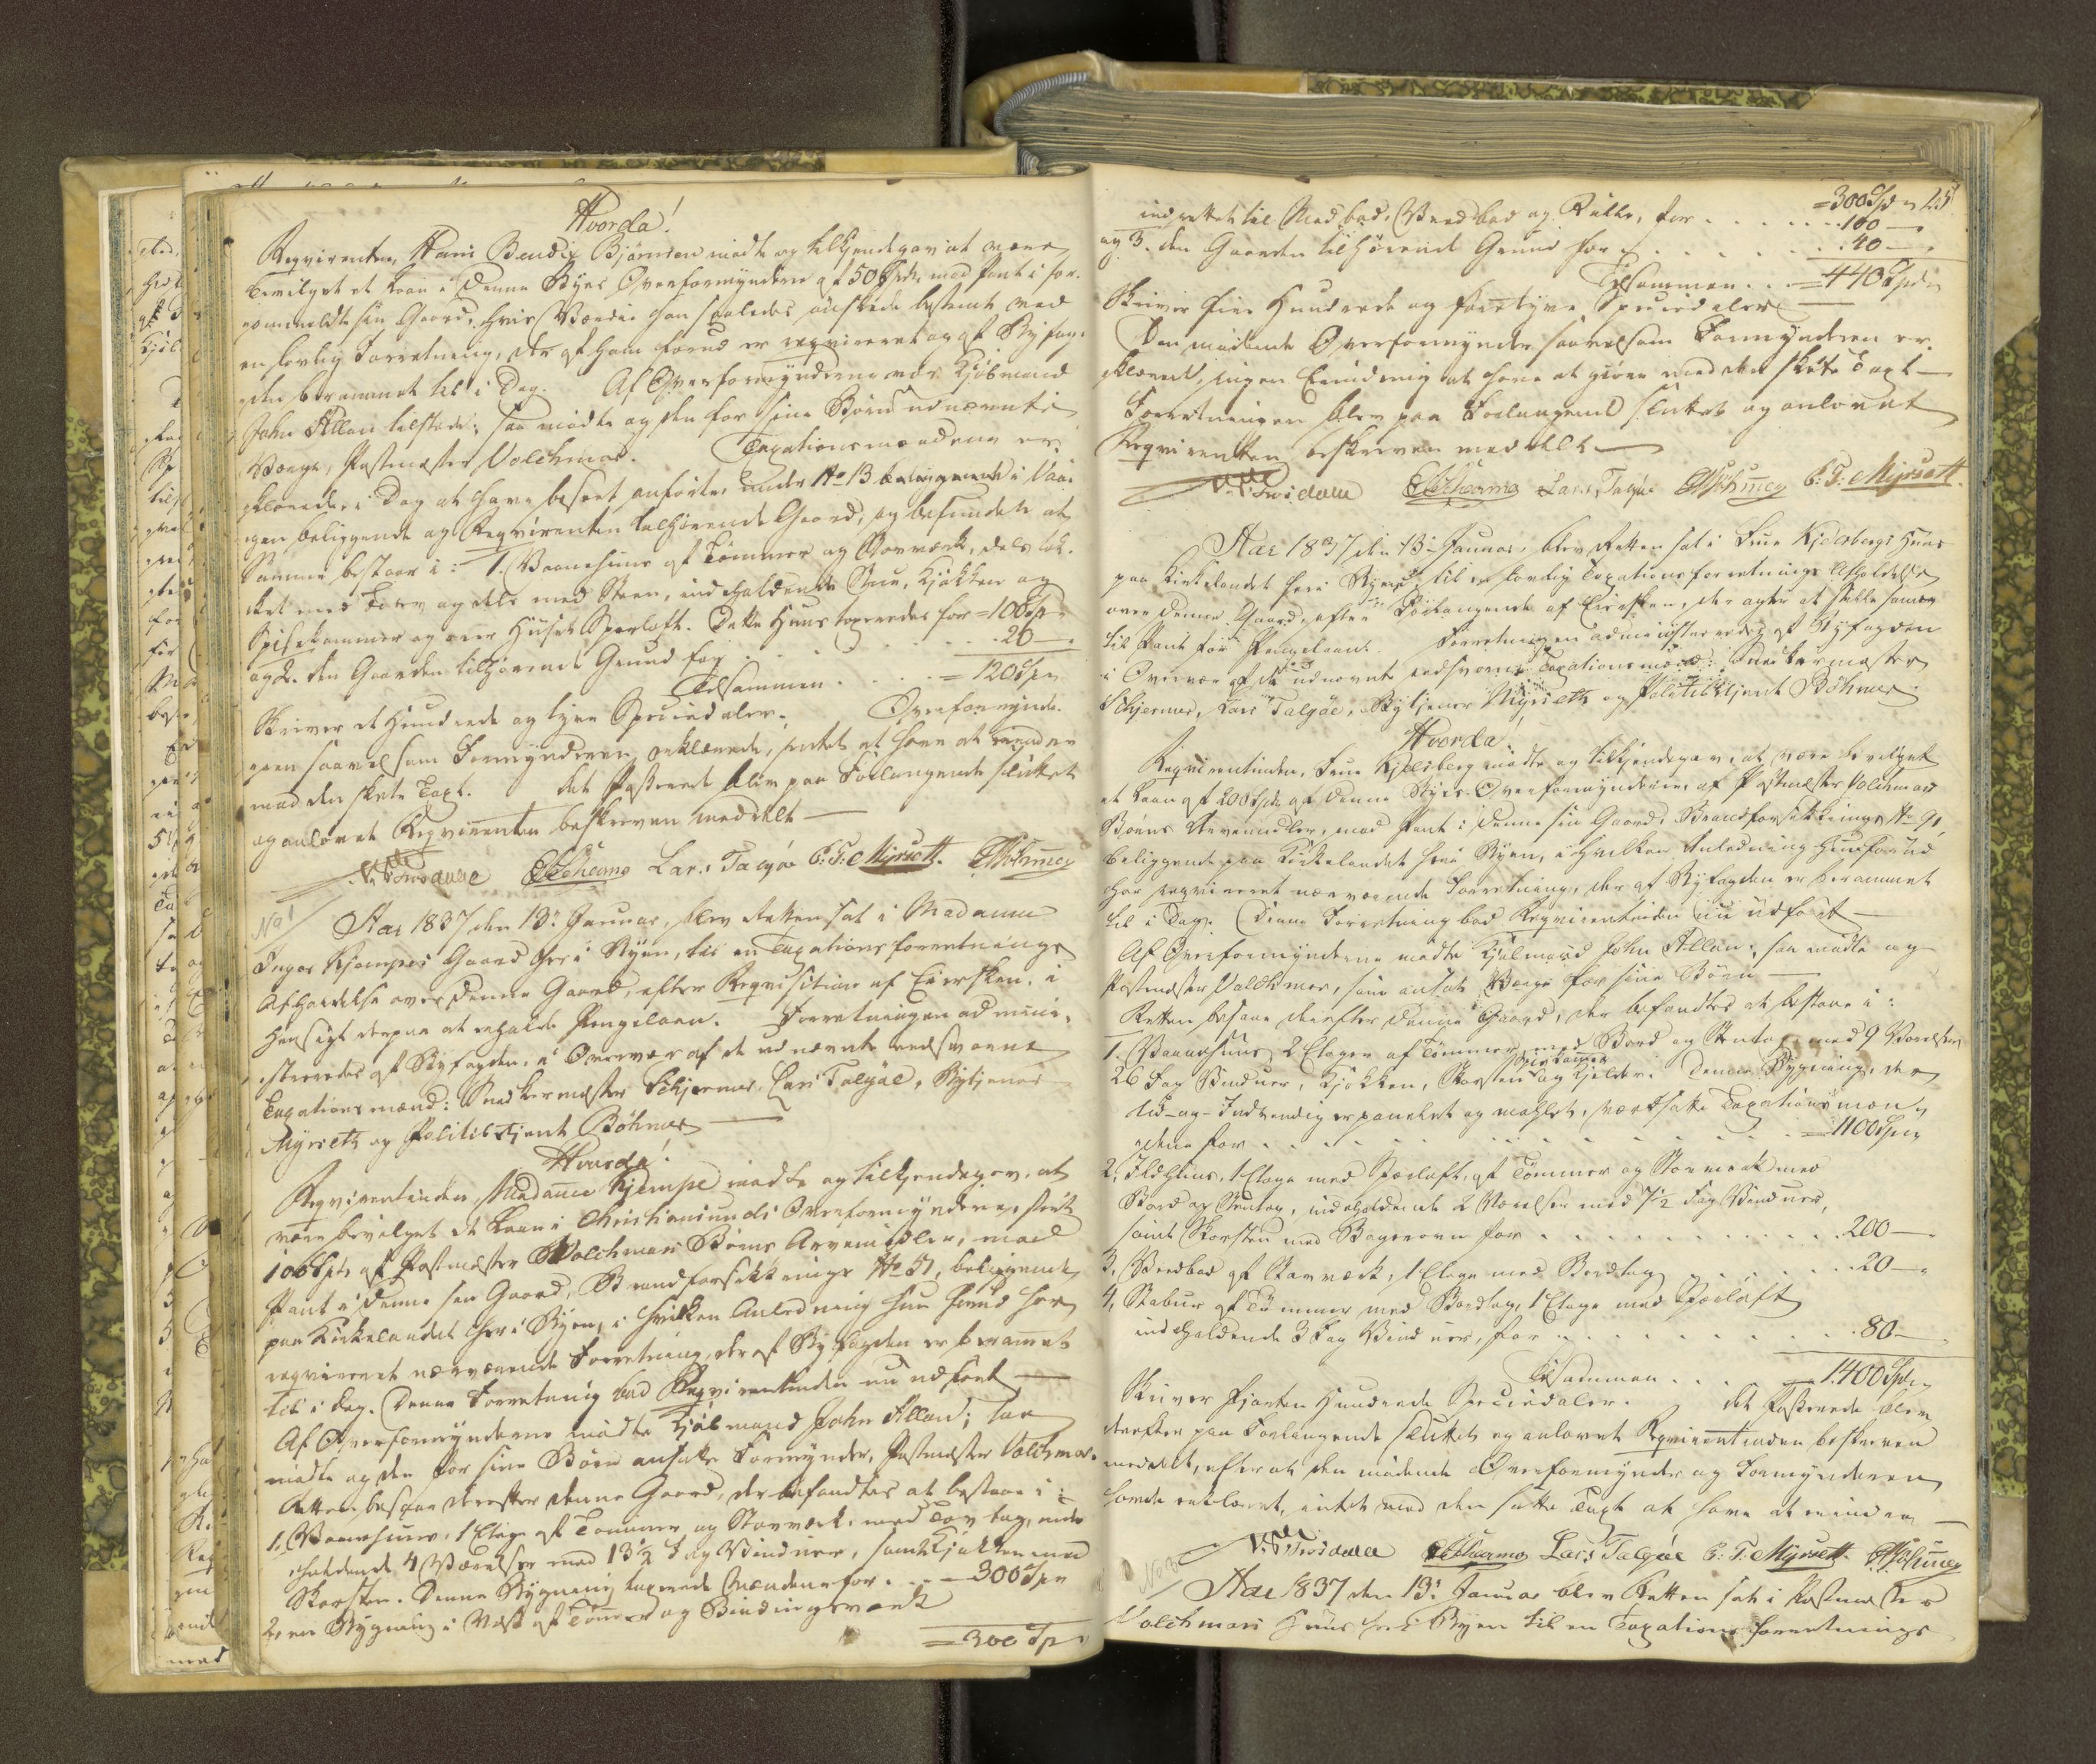 Hvorda!
Reqvirenten, Hans Bendix Bjørnsen mødte og tilkjendegav at være
bevilget et Laan i denne Byes Overformynderie af 50 Spd. mod Pant i for-
ommeldte sin Gaard, hvis Værdie han saaledes ønskede bestemt ved
en lovlig Forretning, der af ham forud er reqvireret og af Byfog-
den berammet til i Dag. Af Overformynderne var Kjøbmand
John Allan tilstede; saa mødte og den for sine Børn udnævnte
Værge, Postmester Volchmar. Taxationsmændene er-
klærede, i Dag at have beseet anførte, under No 13 beliggende i Vaa-
gen beliggende og Reqvirenten tilhørende Gaard, og befundet at
Samme bestaar i: 1. Vaanehuus af Tømmer og Stavværk, dels tæk-
ket med Torv og dels med Steen, indeholdende Stue, Kjøkken og
Spisekammer og over Huset Sperloft. Dette Huus taxeredes for = 100 Sp
og 2. den Gaarden tilhørende Grund for . . . . . 20 —
Tilsammen . . . . = 120 Sp
Skriver et Hundrede og tyve Speciedaler. Overformynde-
ren saavelsom Formynderen erklærede, intet at have at erindre
mod den skete Taxt. Det Passerede blev paa Forlangende sluttet
og anlovet Reqvirenten beskreven meddelt —
Lars Talgøe C: F: Myrseth.
No 1
Aar 1837 den 13de Januar, blev Retten sat i Madame
Inger Kjempes Gaard her i Byen, til en Taxationsforretnings
Afholdelse over denne Gaard, efter Reqvisition af Eiersken, i
Hensigt derpaa at erholde Pengelaan. Forretningen admini-
streredes af Byfogden, i Overvær af de udnævnte eedsvorne
Taxationsmænd: Snedkermester Schjermo, Lars Talgøe, Bytjener
Myrseth og Politibetjent Böhmer —
Hvorda!
Reqvirentinden, Madame Kjempe mødte og tilkjendegav, at
være bevilget et Laan i Christiansunds Overformynderie, stort
100 Spd. af Postmester Volchmars Børns Arvemidler, mod
Pant i denne sin Gaard, Brandforsikkrings No 51, beliggende
paa Kirkelandet her i Byen, i hvilken Anledning hun forud har
reqvireret nærværende Forretning, der af Byfogden er berammet
til i Dag. Denne Forretning bad Reqvirentinden nu udført —
Af Overformynderne mødte Kjøbmand John Allan; saa
mødte og den for sine Børn ansatte Formynder, Postmester Volchmar.
Retten besaae derefter denne Gaard, der befandtes at bestaae i:
1. Vaanehuus, 1 Etage af Tømmer og Stavværk, med Torvtag, inde-
holdende 4 Værelser med 13½ Fag Vinduer, samt Kjøkken med
Skorsten. Denne Bygning taxerede Mændene for . . . = 300 Sp
2. en Bygning i Vest af Tømmer og Bindingsværk
= 300 Sp
= 300 Spd 25
indrettet til Madbod, Vedbod og Rulle, for . . . . 100 —
og 3. den Gaarden tilhørende Grund for . . . . . 40 —
Tilsammen . . = 440 Spd
Skriver fire Hundrede og førretyve Speciedaler —
Den mødende Overformynder saavelsom Formynderen er-
klærede, ingen Erindring at have at giøre mod den skete Taxt —
Forretningen blev paa Forlangende sluttet og anlovet
Reqvirenten beskreven meddelt —
Lars Talgøe C: F: Myrseth.
Aar 1837 den 13de Januar, blev Retten sat i Frue Kjelsbergs Huus
paa Kirkelandet her i Byen, til en lovlig Taxationsforretnings Afholdelse
over denne Gaard, efter Forlangende af Eiersken, der agter at stille samme
til Pant for Pengelaan. Forretningen administreredes af Byfogden
i Overvær af de udnævnte eedsvorne Taxationsmænd: Snedkermester
Schjermo, Lars Talgøe, Bytjener Myrseth og Politibetjent Böhmer
Hvorda!
Reqvirentinden, Frue Kjelsberg mødte og tilkjendegav, at være bevilget
et Laan af 200 Spd. af denne Byes Overformynderie, af Postmester Volchmars
Børns Arvemidler, mod Pant i denne sin Gaard, Brandforsikkrings No 91,
beliggende paa Kirkelandet her i Byen, i hvilken Anledning hun forud
har reqvireret nærværende Forretning, der af Byfogden er berammet
til i Dag. Denne Forretning bad Reqvirentinden nu udført —
Af Overformynderne mødte Kjøbmand John Allan, saa mødte og
Postmester Volchmar, som ansat Værge for sine Børn —
Retten besaae derefter denne Gaard, der befandtes at bestaae i:
1. Vaanehuus, 2 Etager af Tømmer med Bord og Steentag med 9 Værelser
26 Fag Vinduer, Kjøkken, Skorsten, Spiskammer og Kjelder. Denne Bygning, der
Ud- og Indvendig er panelet og mahlet, værdsatte Taxationsmæn-
dene for . . . . . . . . . = 1100 Spd
2, Ildhuus, 1 Etage med Sperloft, af Tømmer og Stavværk med
Bord og Steentag, indeholdende 2 Værelser med 7½ Fag Vinduer,
samt Skorsten med Bagerovn for . . . . . . . 200 —
3, Vedbod af Stavværk, 1 Etage med Bordtag . . . . 20 —
4, Stabur af Tømmer med Bordtag, 1 Etage med Sperloft
indeholdende 3 Fag Vinduer, for . . . . . . . 80 —
Tilsammen . . . = 1400 Spd
Skriver fjorten Hundrede Speciedaler. Det Passerede blev
derefter paa Forlangende sluttet og anlovet Reqvirentinden beskreven
meddelt, efterat den mødende Overformynder og Formynderen
havde erklæret, intet mod den satte Taxt at have at erindre —
Lars Talgøe C: F: Myrseth.
No 3
Aar 1837 den 13de Januar blev Retten sat i Postmester
Volchmars Huus her i Byen til en Taxations forretnings